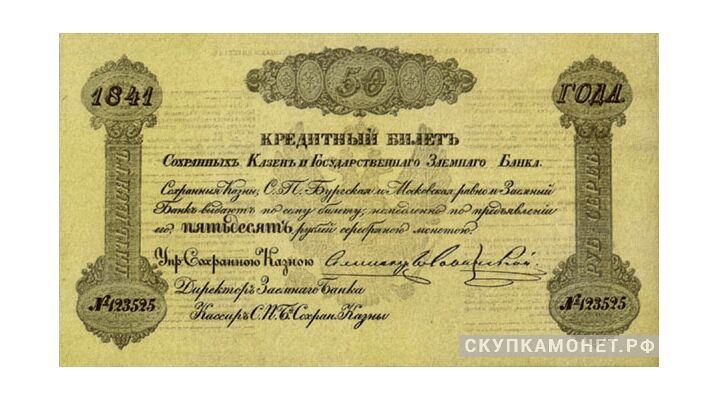 50
1841 ГОДА
КРЕДИТНЫЙ БИЛЕТЪ
СОХРАННЫХЪ КАЗЕНЪ И ГОСУДАРСТВЕННАГО ЗАЕМНАГО БАНКА.
Сохранныя Казны, С.П.Бургская и Московская, равно и Заемный
Банкъ выдаютъ по сему билету, немедленно по предъявленіи
его пятьдесятъ рублей серебряною монетою.
Упр. Сохранною Казною
Директоръ Заемнаго Банка
Кассиръ С.П.Б. Сохран. Казны
ПЯТЬДЕСЯТЪ
РУБ. СЕРЕБ.
№ 123525
№ 123525
СКУПКАМОНЕТ.РФ